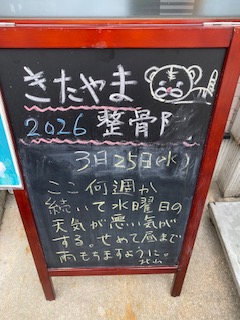 きたやま
2026 整骨院
3月25日(水)
ここ何週か
続いて水曜日の
天気が悪い気が
する。せめて昼まで
雨もちますように。
北山